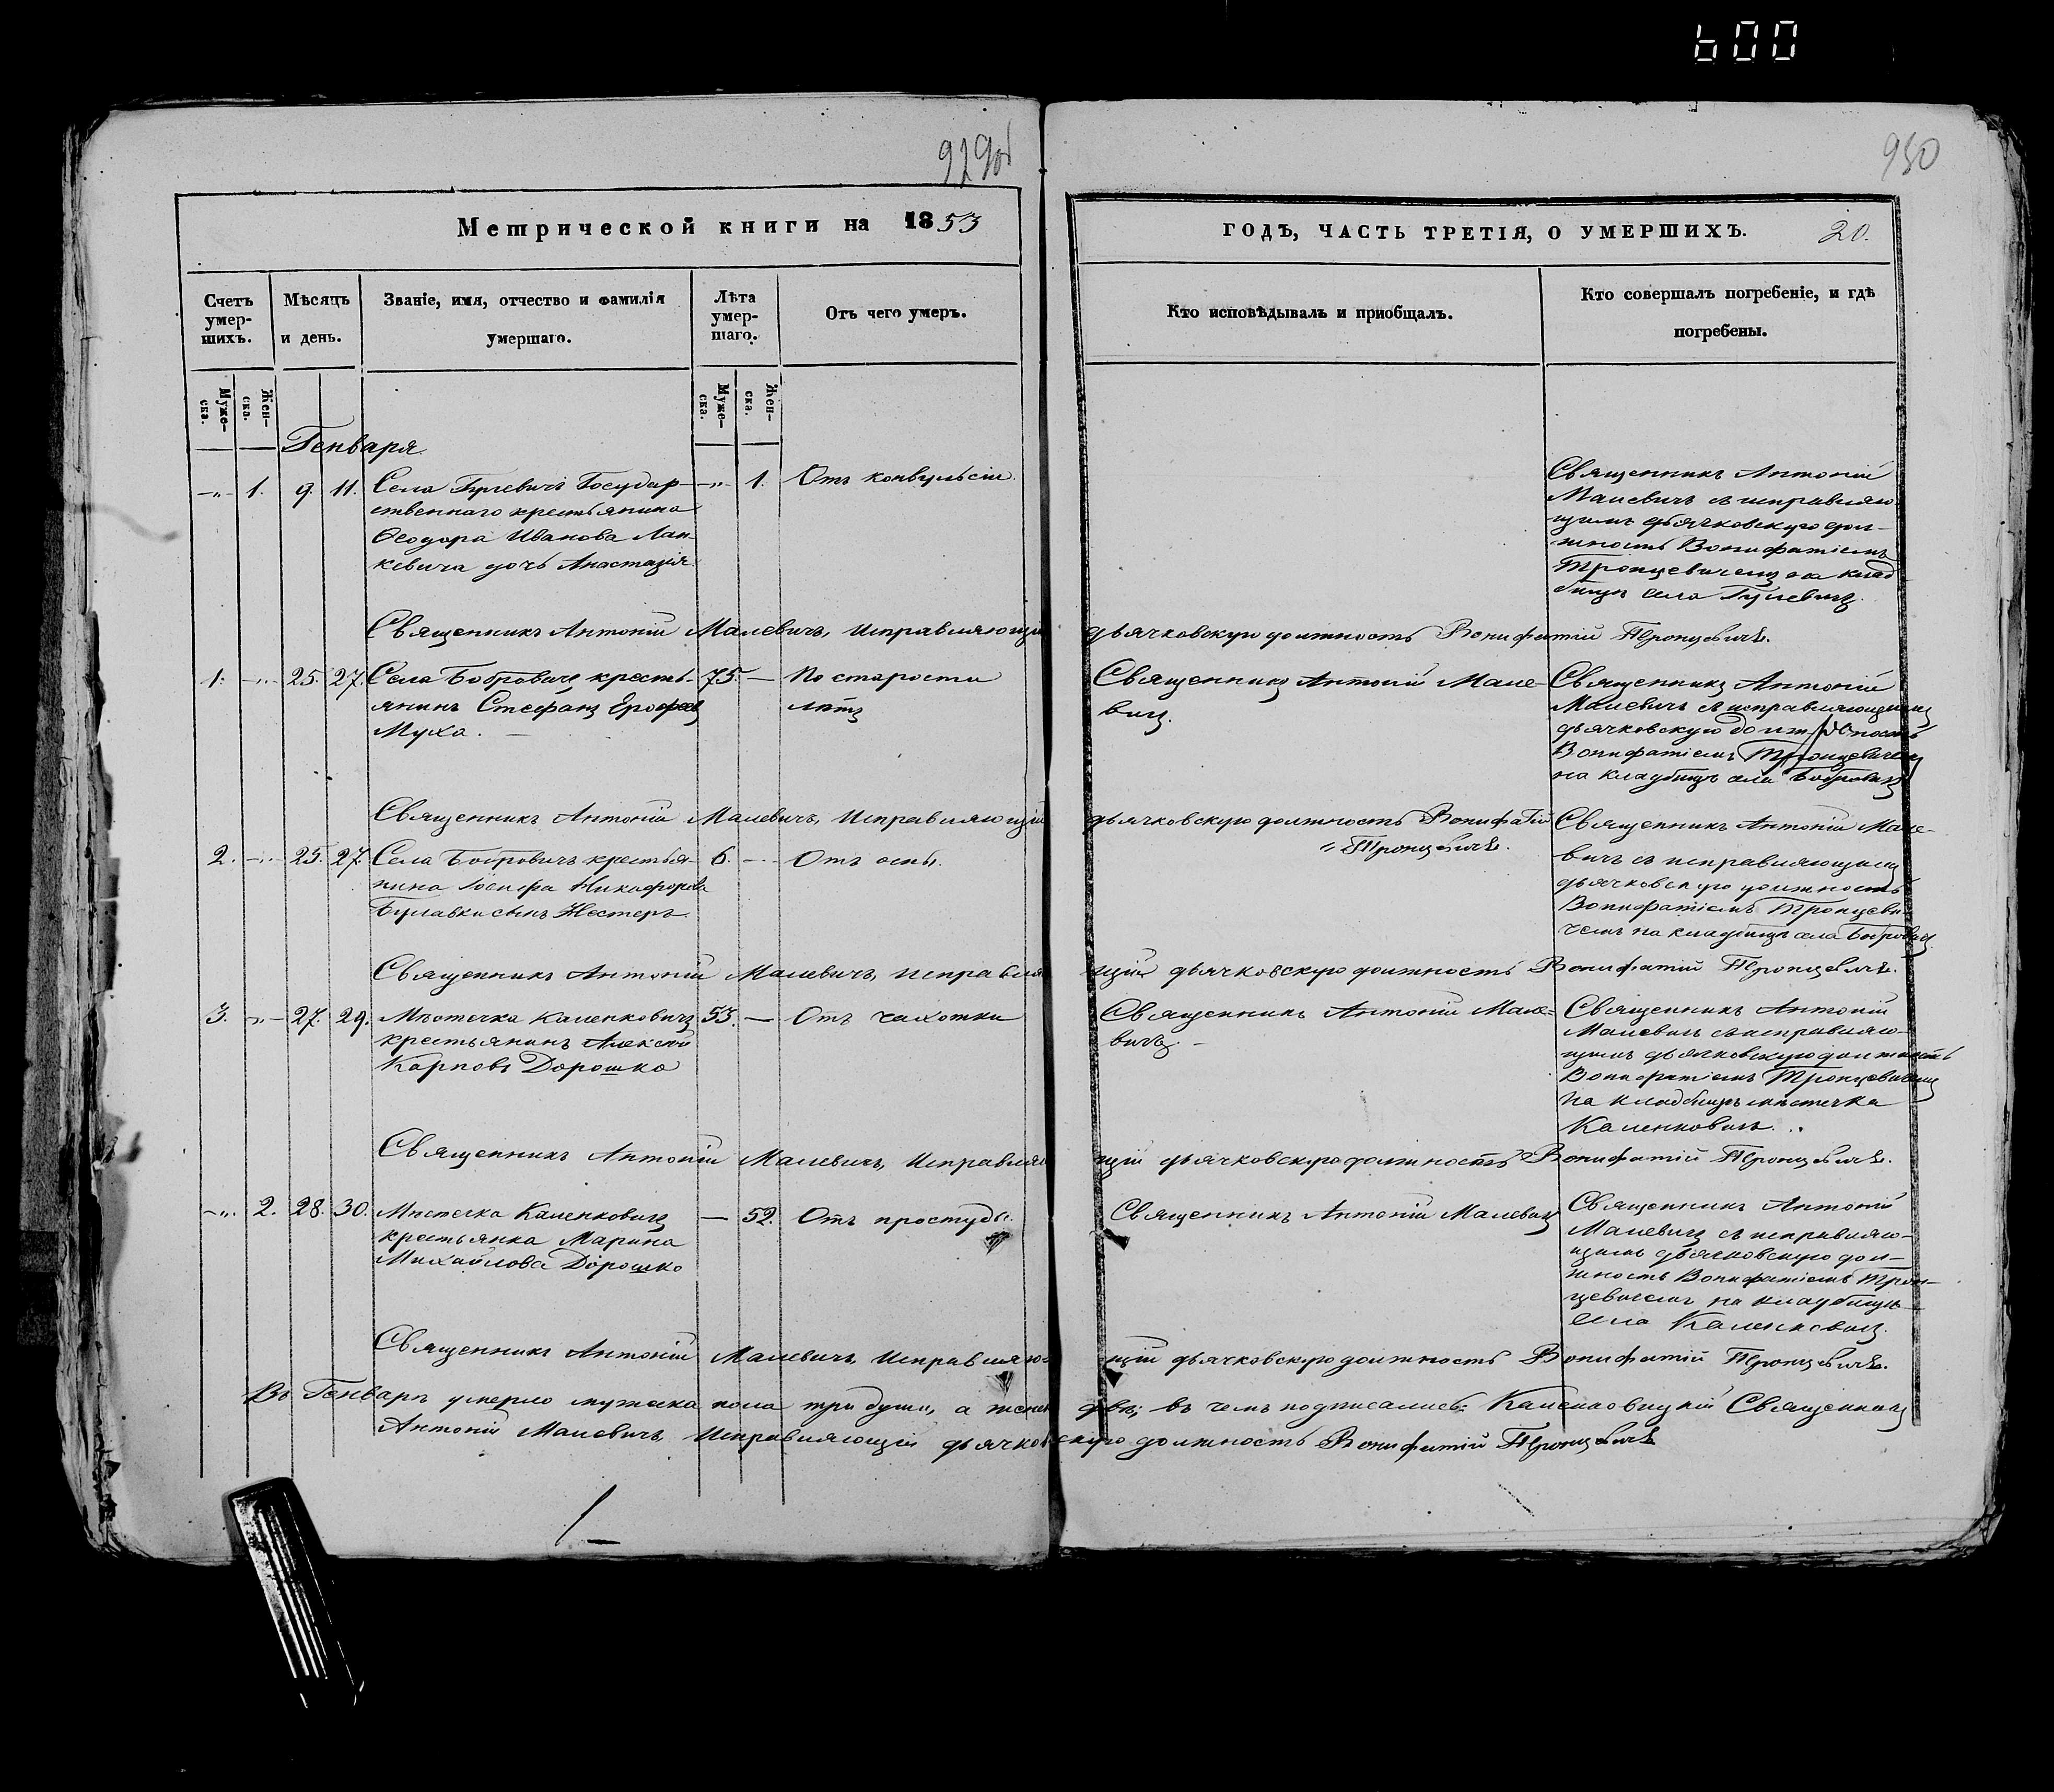 600
929об
930
Метрической книги на 1853
ГОДЪ, ЧАСТЬ ТРЕТІЯ, О УМЕРШИХЪ.
20.
Счетъ умер-шихъ.
Мѣсяцъ и день.
Званіе, имя, отчество и фамилія умершаго.
Лѣта умер-шаго.
Отъ чего умеръ.
Кто исповѣдывалъ и приобщалъ.
Кто совершалъ погребеніе, и гдѣ погребены.
Муже-ска.
Жен-ска.
Муже-ска.
Жен-ска.
Генваря
-"- 1. 9. 11.
Села Гулевичъ Государ-
ственнаго крестьянина
Ѳеодора Иванова Лап-
кевича дочь Анастасія.
-"- 1.
Отъ конвульсіи.
Священникъ Антоній
Малевичъ съ исправляю-
щимъ дьячковскую дол-
жность Вонифатіемъ
Тронцевичемъ на клад-
бищѣ села Гулевичъ.
Священникъ Антоній Малевичъ, Исправляющій дьячковскую должность Вонифатій Тронцевичъ.
1. -"- 25. 27.
Села Бобровичъ кресть-
янинъ Стефанъ Ерофеев
Муха.
75. —
По старости
лѣтъ
Священникъ Антоній Мале-
вичъ.
Священникъ Антоній
Малевичъ съ исправляющимъ
дьячковскую должность
Вонифатіемъ Тронцевичемъ
на кладбищѣ села Бобровичъ
Священникъ Антоній Малевичъ, Исправляющій дьячковскую должность Вонифатій
Тронцевичъ.
2. -"- 25. 27.
Села Бобровичъ крестья-
нина Іосифа Никифорова
Булавки сынъ Несторъ.
6. —
Отъ оспы.
Священникъ Антоній Мале-
вичъ съ исправляющимъ
дьячковскую должность
Вонифатіемъ Тронцеви-
чемъ на кладбищѣ села Бобровичъ.
Священникъ Антоній Малевичъ, исправляющій дьячковскую должность Вонифатій Тронцевичъ.
3. -"- 27. 29.
Мѣстечка Каленковичъ
крестьянинъ Алексѣй
Карповъ Дорошко
53. —
Отъ чахотки
Священникъ Антоній Мале-
вичъ. –
Священникъ Антоній
Малевичъ съ исправляю-
щимъ дьячковскую должность
Вонифатіемъ Тронцевичемъ
на кладбищѣ мѣстечка
Каленковичъ.
Священникъ Антоній Малевичъ, Исправляющій дьячковскую должность Вонифатій Тронцевичъ.
-"- 2. 28. 30.
Мѣстечка Каленковичъ
крестьянка Марина
Михайлова Дорошко
— 52.
Отъ простуды.
Священникъ Антоній Малевичъ
Священникъ Антоній
Малевичъ съ исправляю-
щимъ дьячковскую дол-
жность Вонифатіемъ Трон-
цевичемъ на кладбищѣ
села Каленковичъ.
Священникъ Антоній Малевичъ, Исправляющій дьячковскую должность Вонифатій Тронцевичъ.
Въ Генварѣ умерло мужеска пола три души, а женск двѣ; въ чемъ подписались: Каленковицкій Священникъ
Антоній Малевичъ, Исправляющій дьячковскую должность Вонифатій Тронцевичъ